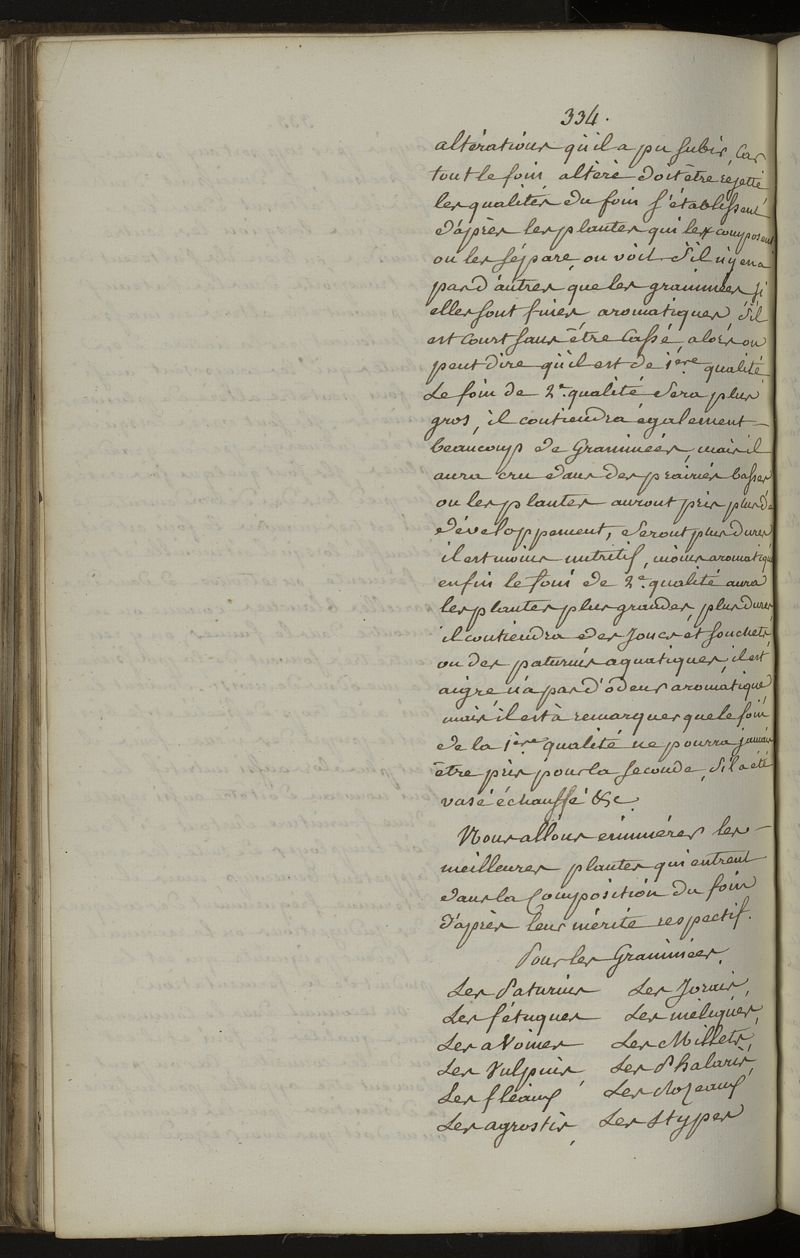 334.
altérations qu'il a pu subir, Car
tout le foin altéré doit être rejetté
les qualités du foin s'établissent
d'après les plantes qui le composent
ou les sépare, on voit s'il n'y en a
pas d'autres que les graminées si
elles sont fines aromatiques, s'il
est court sans être Cassé, alors on
peut dire qu'il est de 1ère qualité.
Le foin de 2e. qualité sera plus
gros, il contiendra également
beaucoup de Graminées, mais il
aura cru dans des prairies basses
ou les plantes auront pris plus de
développement, seront plus dures
il est moins nutritif, moins aromatique
enfin le foin de 2e. qualité aura
les plantes plus grandes, plus dures,
il contiendra des Joncs et souchets,
ou des paturins aquatiques, il est
aigre n'a pas d'odeur aromatique
mais il est à remarquer que le foin
de la 1ère qualité ne pourra jamais
être pris pour la seconde, s'il a été
vasé échauffé &c
Nous allons énumérer les
meilleures plantes qui entrent
dans la Composition du foin
d'après leur mérite respectif.
Pour les Graminées.
Les Paturins Les Jvrais,
Les fétuques Les méliques,
Les aVoines Les Millets,
Les Vulpins, Les Phalaris,
Les fléaux, Les Rozeaux
Les agrostis, Les Stypes